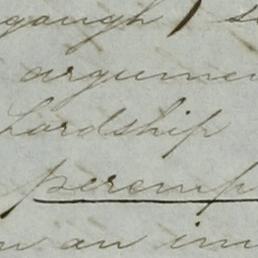 gaugh
argume
hardship
peremp
an im